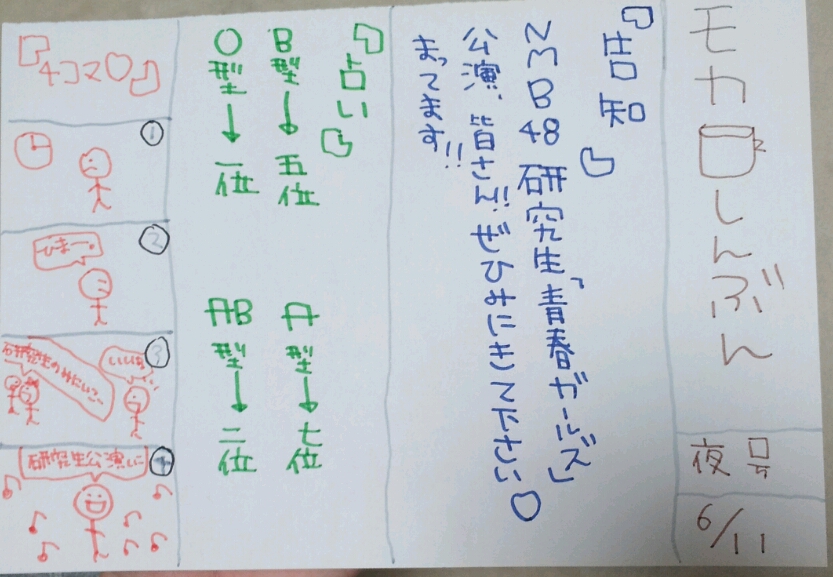 モカしんぶん
夜号
6/11
『告知』
NMB48 研究生「青春ガールズ」
公演、皆さん!!ぜひみにきて下さい♡
まってます!!
『占い』
B型→五位
A型→七位
O型→一位
AB型→二位
『4コマ♡』
①
②
ひまー。
③
いいね
研究生のみにいこ
④
研究生公演に